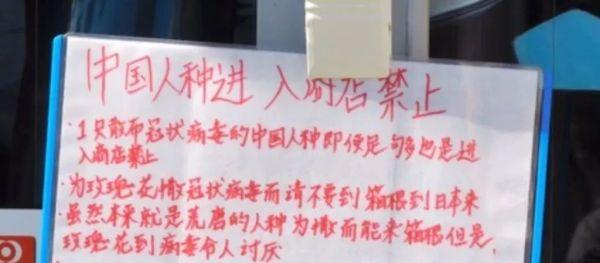 中国人种进入商店禁止
·1只散布冠状病毒的中国人种即便足够多也是进
入商店禁止
·为玫瑰花撒冠状病毒而请不要到箱根到日本来
·虽然本来就是荒唐的人种为撒而能来箱根但是,
玫瑰花到病毒令人讨厌